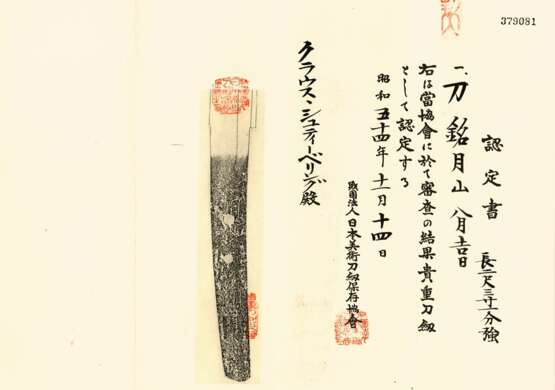 379081
認定書
一、刀 銘月山 八月吉日
長二尺三寸一分強
右は當協會に於て審査の結果貴重刀剣
として認定する
昭和五十四年十一月十四日
財団法人日本美術刀剣保存協會
クラウス・シュティーベリング殿